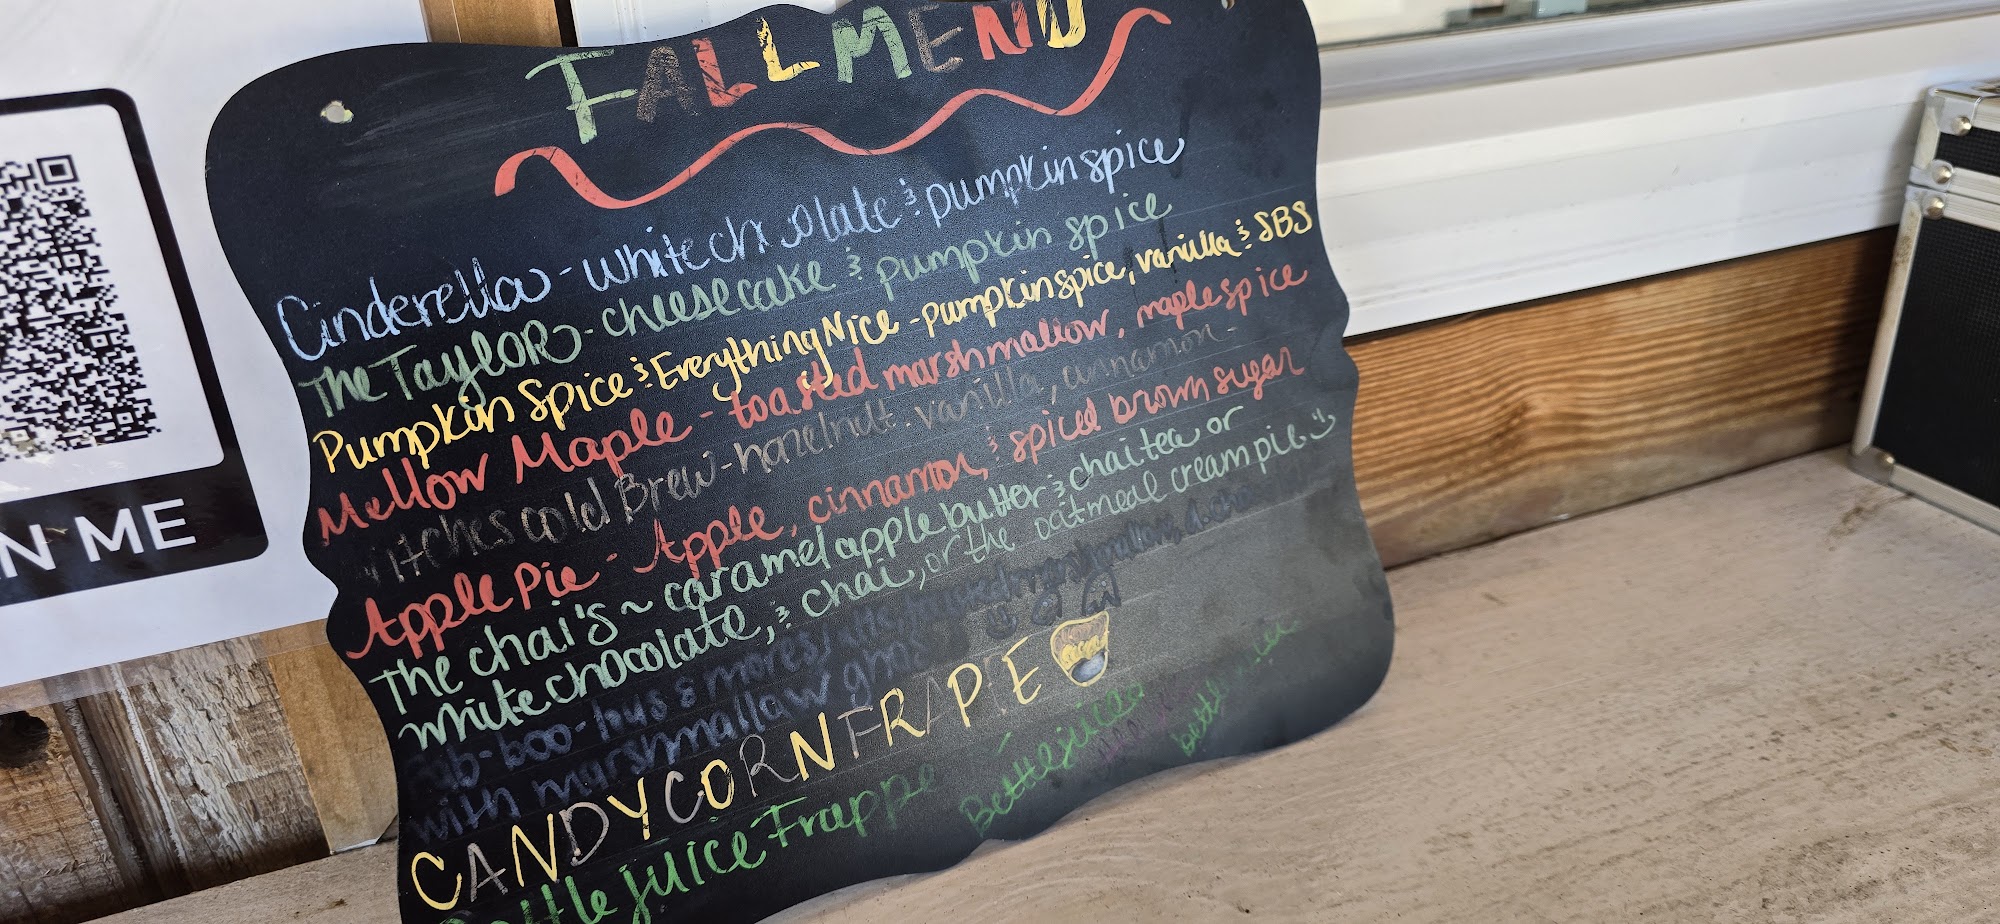 FALL MENU
Cinderella - white chocolate & pumpkin spice
The Taylor - cheesecake & pumpkin spice
Pumpkin Spice & Everything Nice - pumpkin spice, vanilla & SBS
Mellow Maple - toasted marshmallow, maple spice
Witches cold Brew - hazelnut, vanilla, cinnamon -
Apple Pie - Apple, cinnamon, & spiced brown sugar
The chai's ~ caramel apple butter & chai tea or
white chocolate, & chai, or the oatmeal cream pie :)
boo - s'mores marshmallow
with marshmallow
CANDY CORN FRAPPE
juice Frappe
Bettlejuice
N ME